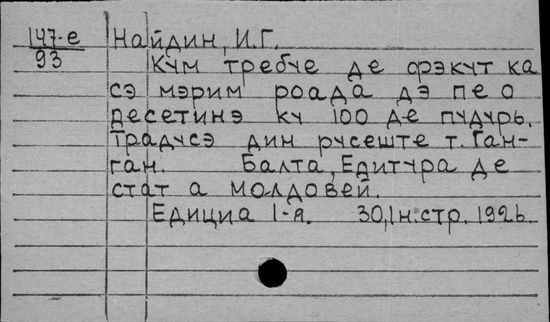 147-е
93
Найдин, И.Г.
Кум требуе де фэкут ка
сэ мэрим роада дэ пе о
десетинэ ку 100 де пудурь.
Традусэ дин русеште т. Ган-
ган. Балта, Едитура де
стат а Молдовей.
Едициа 1-я. 30,1н.стр. 1926.